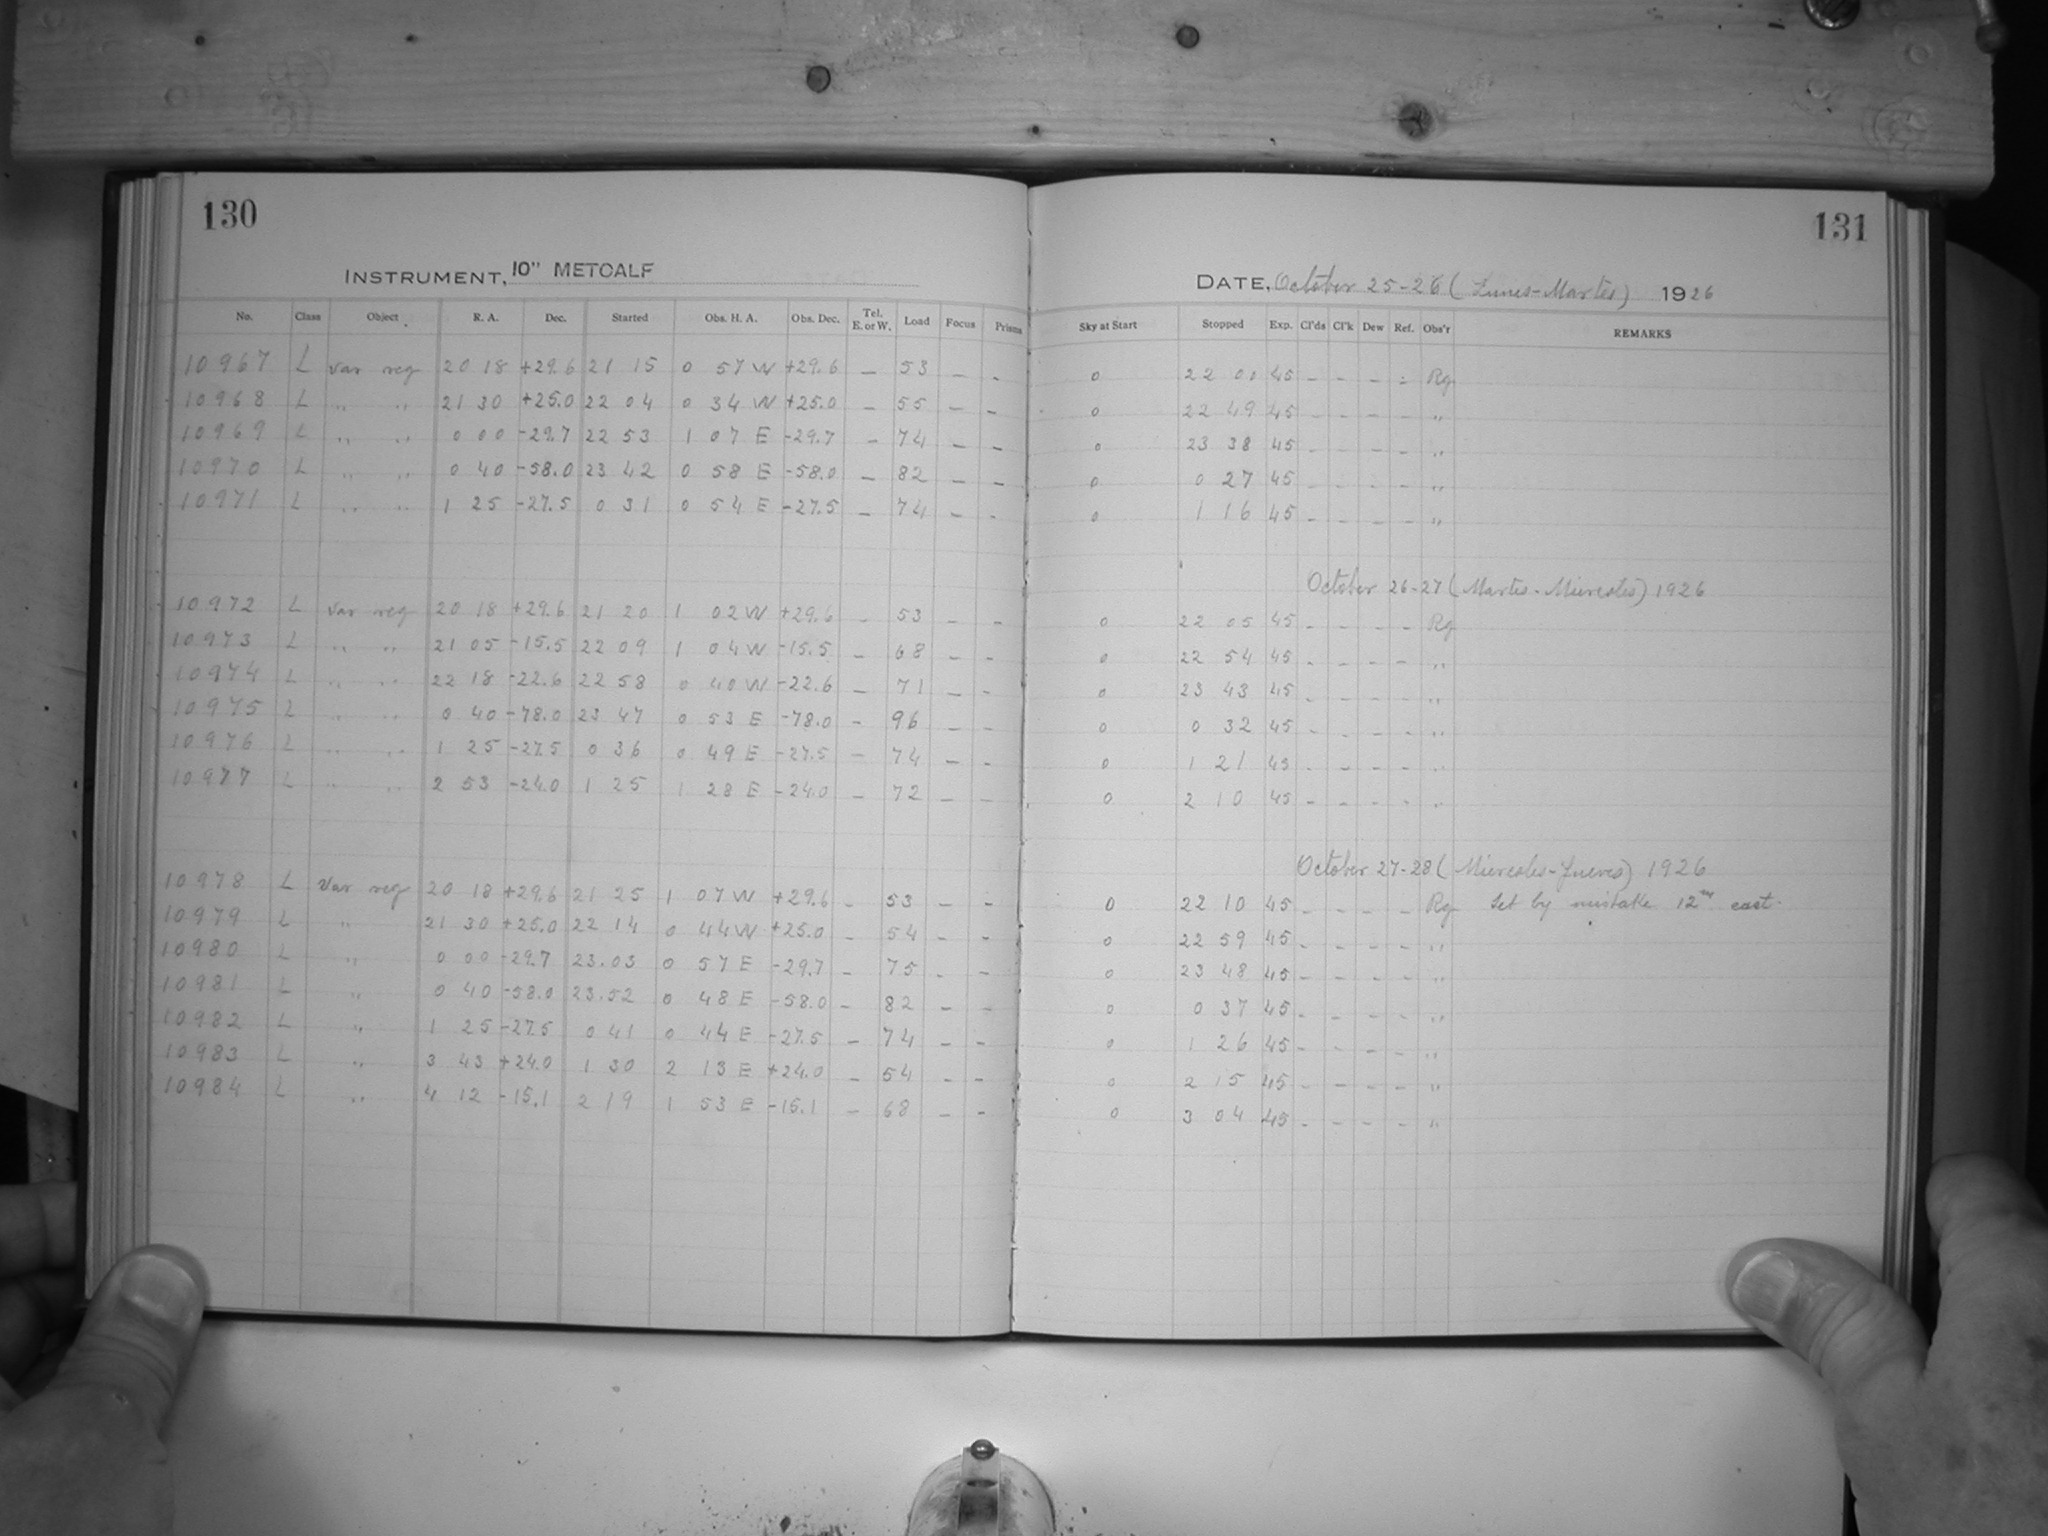 130
INSTRUMENT, 10" METCALF
No. Class Object R. A. Dec. Started Obs. H. A. Obs. Dec. Tel. E. or W. Load Focus Prisms
10967 L Var reg 20 18 +29.6 21 15 0 57 W +29.6 – 53 – –
10968 L " " 21 30 +25.0 22 04 0 34 W +25.0 – 55 – –
10969 L " " 0 00 -29.7 22 53 1 07 E -29.7 – 74 – –
10970 L " " 0 40 -58.0 23 42 0 58 E -58.0 – 82 – –
10971 L " " 1 25 -27.5 0 31 0 54 E -27.5 – 74 – –
10972 L Var reg 20 18 +29.6 21 20 1 02 W +29.6 – 53 – –
10973 L " " 21 05 -15.5 22 09 1 04 W -15.5 – 68 – –
10974 L " " 22 18 -22.6 22 58 0 40 W -22.6 – 71 – –
10975 L " " 0 40 -78.0 23 47 0 53 E -78.0 – 96 – –
10976 L " " 1 25 -27.5 0 36 0 49 E -27.5 – 74 – –
10977 L " " 2 53 -24.0 1 25 1 28 E -24.0 – 72 – –
10978 L Var reg 20 18 +29.6 21 25 1 07 W +29.6 – 53 – –
10979 L " 21 30 +25.0 22 14 0 44 W +25.0 – 54 – –
10980 L " 0 00 -29.7 23.03 0 57 E -29.7 – 75 – –
10981 L " 0 40 -58.0 23.52 0 48 E -58.0 – 82 – –
10982 L " 1 25 -27.5 0 41 0 44 E -27.5 – 74 – –
10983 L " 3 43 +24.0 1 30 2 13 E +24.0 – 54 – –
10984 L " 4 12 -15.1 2 19 1 53 E -15.1 – 68 – –
131
DATE, October 25-26 (Lunes-Martes) 1926
Sky at Start Stopped Exp. Cl'ds Cl'k Dew Ref. Obs'r REMARKS
0 22 00 45 – – – – Rg
0 22 49 45 – – – – "
0 23 38 45 – – – – "
0 0 27 45 – – – – "
0 1 16 45 – – – – "
October 26-27 (Martes-Miercoles) 1926
0 22 05 45 – – – – Rg
0 22 54 45 – – – – "
0 23 43 45 – – – – "
0 0 32 45 – – – – "
0 1 21 45 – – – – "
0 2 10 45 – – – – "
October 27-28 (Miercoles-Jueves) 1926
0 22 10 45 – – – – Rg Set by mistake 12m east.
0 22 59 45 – – – – "
0 23 48 45 – – – – "
0 0 37 45 – – – – "
0 1 26 45 – – – – "
0 2 15 45 – – – – "
0 3 04 45 – – – – "